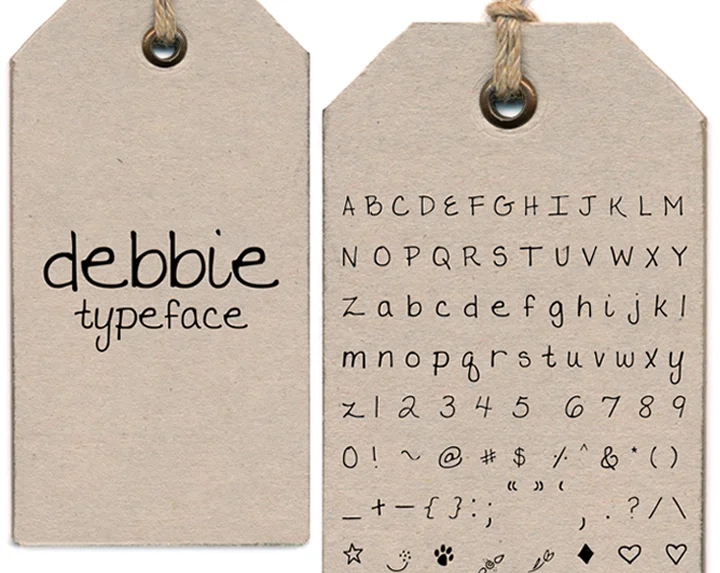 debbie
typeface
A B C D E F G H I J K L M
N O P Q R S T U V W X Y
Z a b c d e f g h i j k l
m n o p q r s t u v w x y
z 1 2 3 4 5 6 7 8 9
0 ! ~ @ # $ % ^ & * ( )
_ + - { } : ; “ ” ‘ , . ? / \